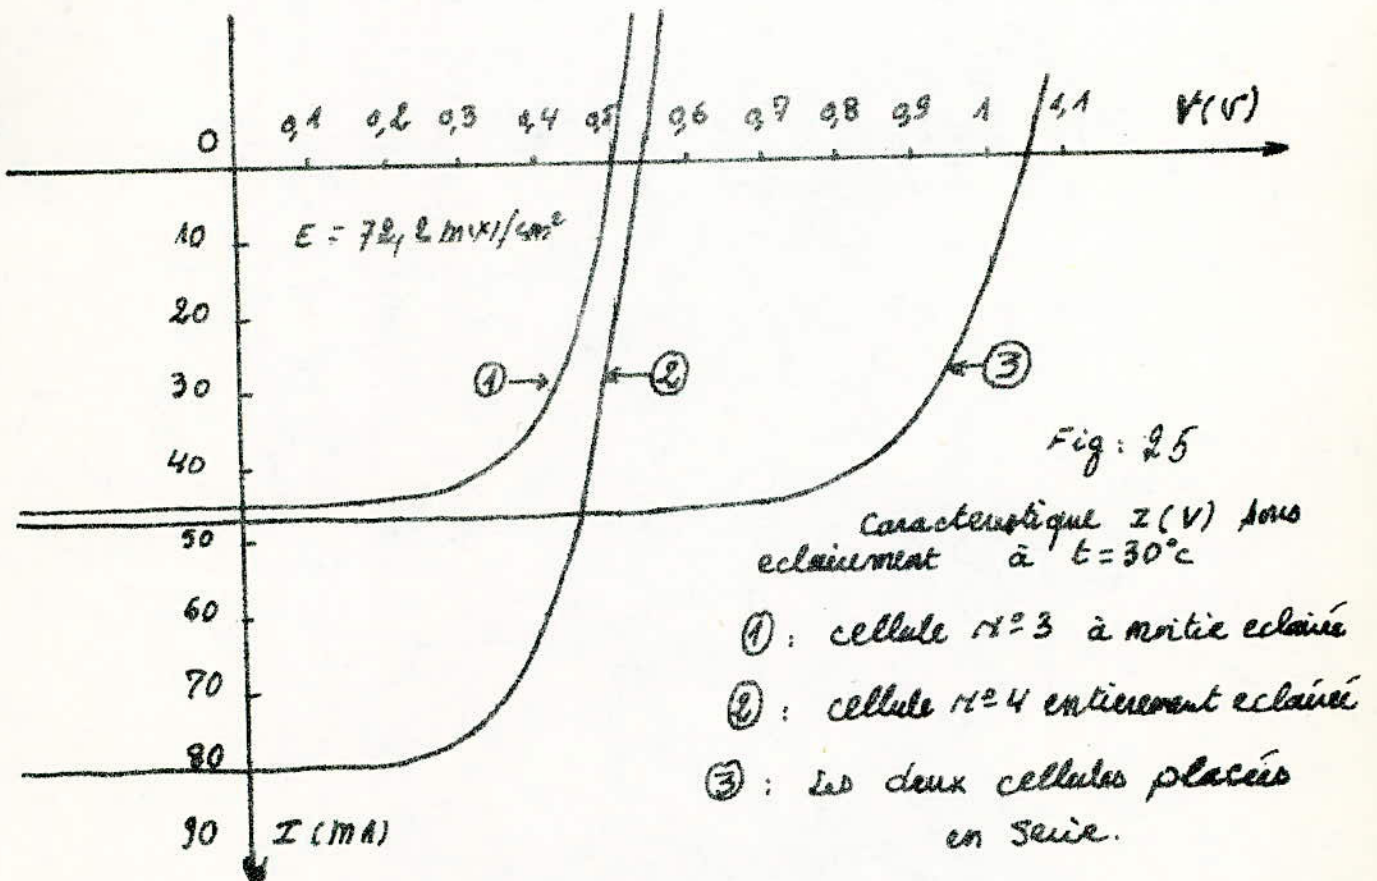 0,1 0,2 0,3 0,4 0,5 0,6 0,7 0,8 0,9 1 1,1 V(v)
0
10
E = 72,2 mW/cm²
20
30
① ② ③
40
Fig: 25
50
Caracteristique I(V) sous
eclairement à t=30°c
60
①: cellule n°3 à moitie eclairée
70
②: cellule n°4 entierement eclairée
80
③: Les deux cellules placées
en Serie.
90 I(mA)